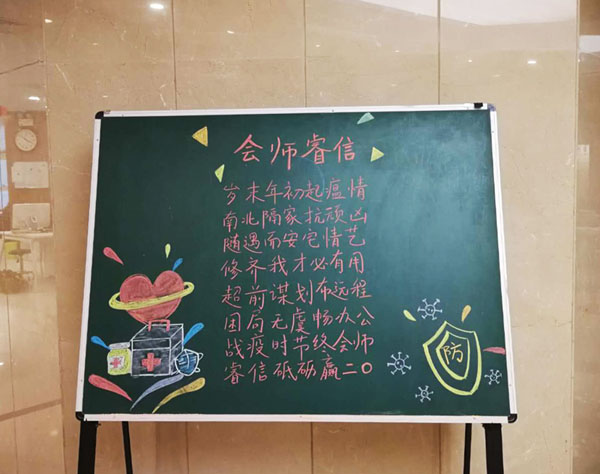 会师睿信
岁末年初起瘟情
南北隔家抗顽凶
随遇而安宅情艺
修齐我才必有用
超前谋划布远程
困局无虞畅办公
战疫时节终会师
睿信砥砺赢二〇
防